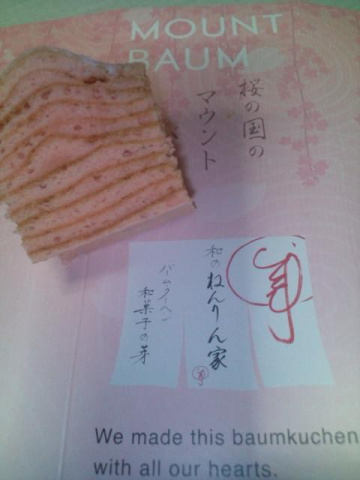 MOUNT
BAUM
桜の国の
マウント
和のねんりん家
バームクーヘン
和菓子の芽
We made this baumkuchen
with all our hearts.